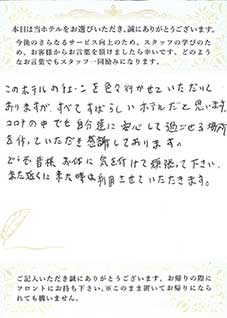 本日は当ホテルをお選びいただき、誠にありがとうございます。
今後のさらなるサービス向上のため、スタッフの学びのため、お客様からお言葉を頂けましたら幸いです。どのようなお言葉でもスタッフ一同励みになります。
このホテルのチェーンを色々行かせていただいて
おりますが、すべてすばらしいホテルだと思います。
コロナの中でも自分達に安心して過ごせる場所
を作っていただき感謝しております。
どうぞ皆様お体に気を付けて頑張って下さい。
また近くに来た時は利用させていただきます。
ご記入いただき誠にありがとうございます。お帰りの際に
フロントにお持ち下さい。※このまま置いてお帰りになら
れても構いません。